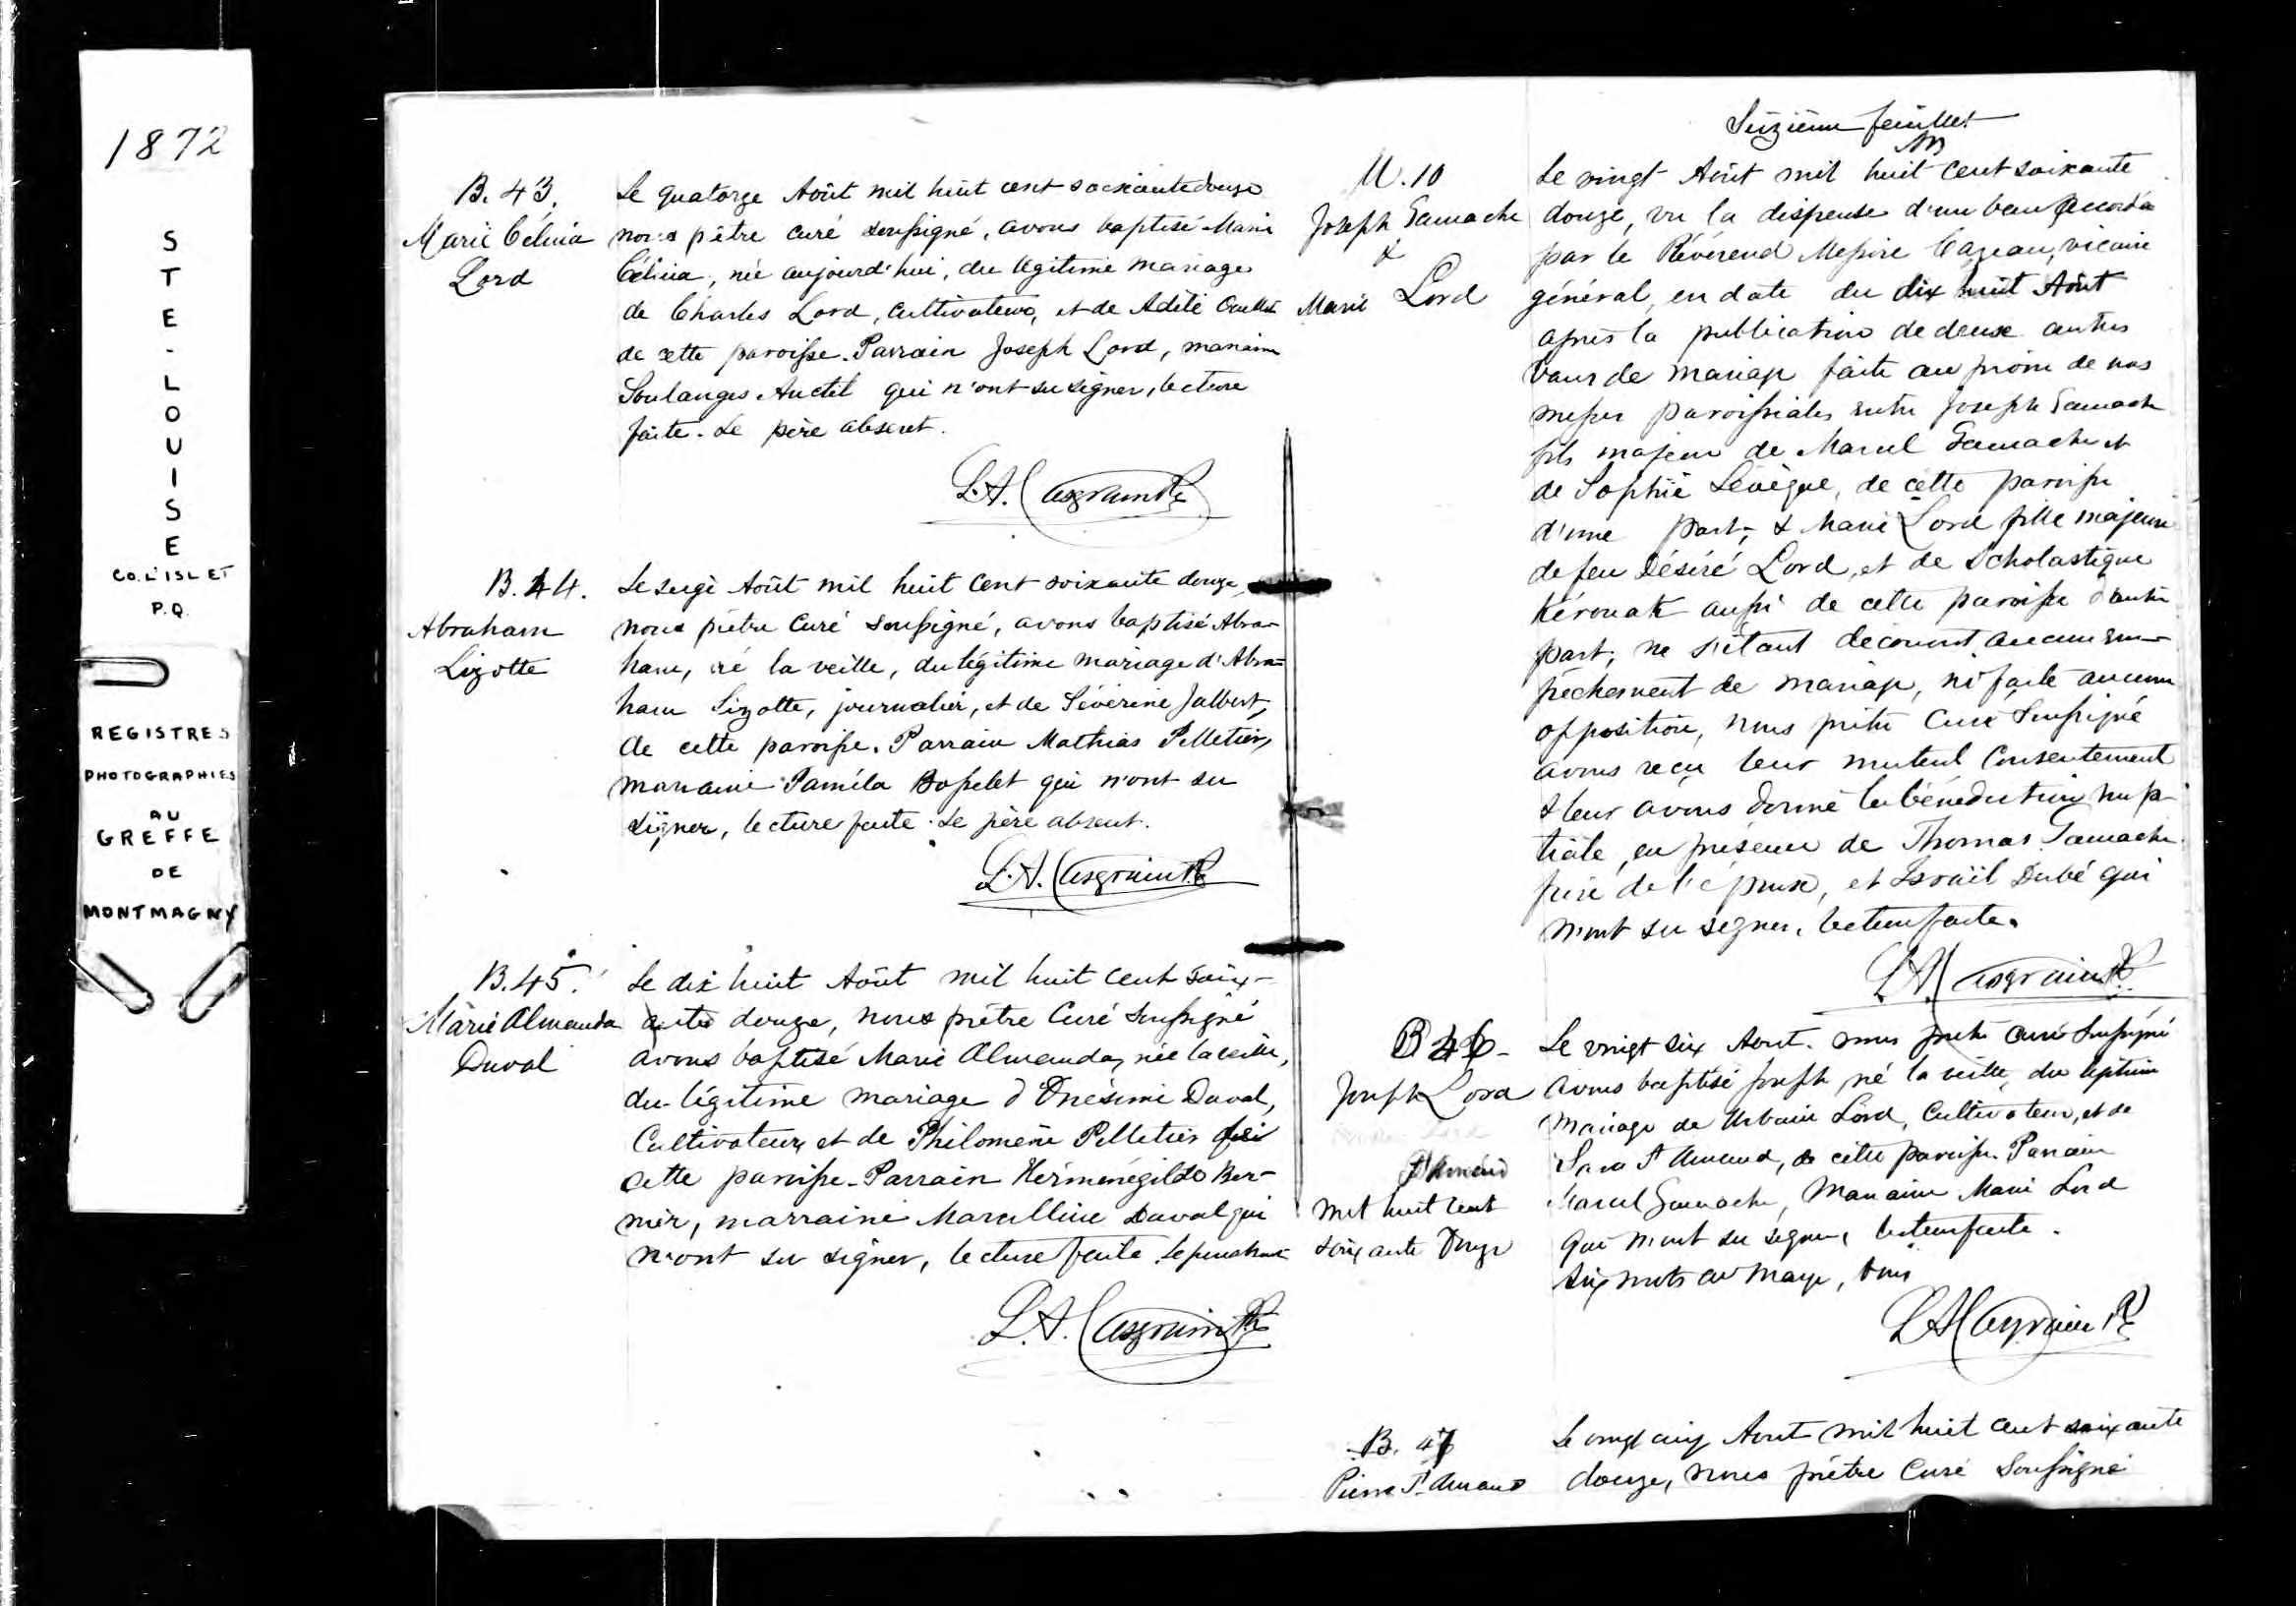 1872
STE-LOUISE
CO. L'ISLET
P.Q.
REGISTRES
PHOTOGRAPHIES
AU
GREFFE
DE
MONTMAGNY
B. 43.
Marie Célina
Lord
Le quatorze Août mil huit cent soixante douze
nous prêtre curé soussigné, avons baptisé Marie
Célina, née aujourd'hui, du légitime mariage
de Charles Lord, cultivateur, et de Adèle
de cette paroisse. Parrain Joseph Lord, marraine
Soulanges Anctil qui n'ont su signer, lecture
faite. Le père absent.
L.A. Casgrain Ptre
B. 44.
Abraham
Lizotte
Le seize Août mil huit cent soixante douze,
nous prêtre Curé soussigné, avons baptisé Abra-
ham, né la veille, du légitime mariage d'Abra-
ham Lizotte, journalier, et de Séverine Jalbert,
de cette paroisse. Parrain Mathias Pelletier,
marraine Paméla qui n'ont su
signer, lecture faite. Le père absent.
L.A. Casgrain Ptre
B. 45.
Marie Almanda
Duval
Le dix huit Août mil huit cent soix-
ante douze, nous prêtre Curé soussigné
avons baptisé Marie Almanda, née la veille,
du légitime mariage d'Onésime Duval,
Cultivateur, et de Philomène Pelletier
cette paroisse. Parrain Herménégilde Ber-
nier, marraine Marcelline Duval qui
n'ont su signer, lecture faite. Le père absent
L.A. Casgrain Ptre
Seizième feuillet
M. 10
Joseph Gamache
&
Marie Lord
Le vingt Août mil huit cent soixante
douze, vu la dispense d'un ban accordée
par le Révérend Messire Cazeau, vicaire
général, en date du dix huit Août
après la publication de deux autres
bans de mariage faite au prône de nos
messes paroissiales entre Joseph Gamache
fils majeur de Marcel Gamache et
de Sophie Lévêque, de cette paroisse
d'une part; & Marie Lord fille majeure
de feu Désiré Lord, et de Scholastique
Kérouak aussi de cette paroisse d'autre
part; ne s'étant découvert aucun em-
pêchement de mariage, ni faite aucune
opposition, nous prêtre Curé soussigné
avons reçu leur mutuel Consentement
& leur avons donné la bénédiction nup-
tiale, en présence de Thomas Gamache
de l'épouse, et Israël Dubé qui
n'ont su signer, lecture faite.
L.A. Casgrain Ptre
B 46-
Joseph Lord
St Amand
mil huit cent
soixante douze
Le vingt six Août. nous prêtre curé soussigné
avons baptisé Joseph, né la veille, du légitime
mariage de Urbain Lord, Cultivateur, et de
Sara St Amand, de cette paroisse. Parrain
Marcel Gamache, Marraine Marie Lord
qui n'ont su signer, lecture faite.
Six mots en marge, bons
L.A. Casgrain Ptre
B. 47
Pierre St. Amand
Le vingt cinq Août mil huit cent soixante
douze, nous prêtre Curé Soussigné